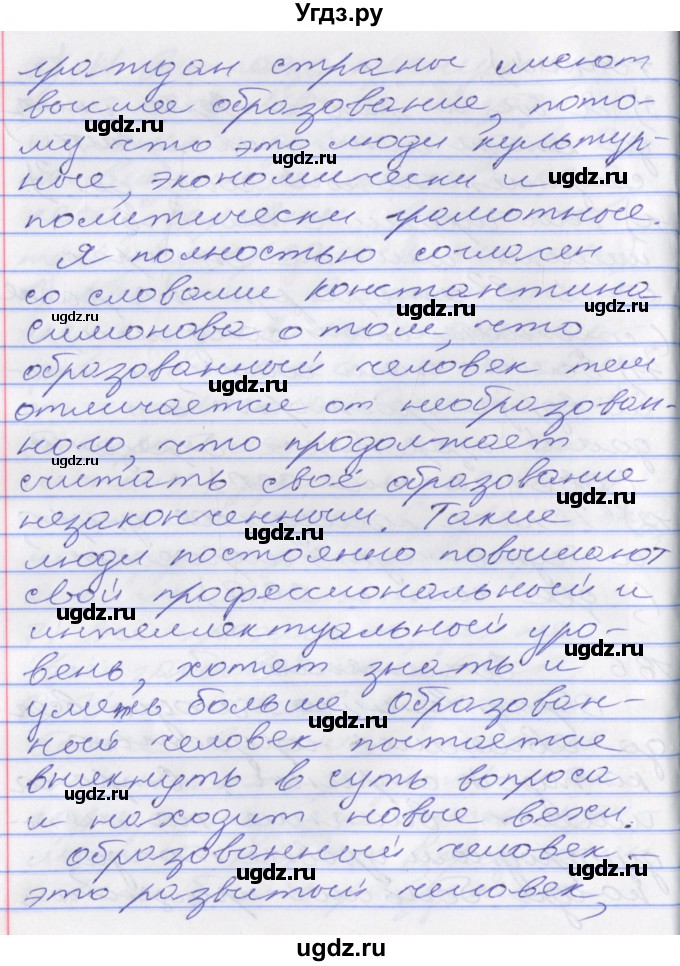 Угдз.ру
граждан страны имеют
высшее образование, пото-
му что это люди культур-
ные, экономически и
политически грамотные.
Я полностью согласен
со словами Константина
Симонова о том, что
образованный человек тем
отличается от необразован-
ного, что продолжает
считать своё образование
незаконченным. Такие
люди постоянно повышают
свой профессиональный и
интеллектуальный уро-
вень, хотят знать и
уметь больше. Образован-
ный человек пытается
вникнуть в суть вопроса
и находит новые вехи.
Образованный человек –
это развитый человек,
ugdz.ru